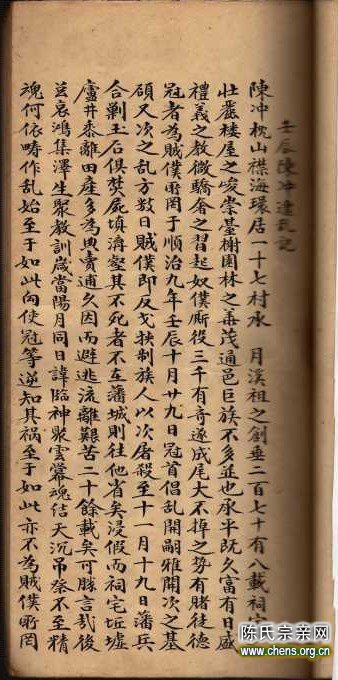 壬辰陳冲遭乱記
陳冲枕山襟海環居一十七村承 月溪祖之創垂二百七十有八載祠宇
壯麗楼屋之峻崇臺榭園林之美茂通邑巨族不多並也承平既久富有日盛
禮義之教微驕奢之習起奴僕厮役三千有竒遂成尾大不掉之势有賭徒德
冠者為賊僕所罔于順治九年壬辰十月廿九日冠首倡乱開嗣雅開次之基
碩又次之乱方数日賊僕即反戈挾制族人以次屠殺至十一月十九日藩兵
合剿玉石俱焚屍填濟壑其不死者不在藩城則往他省矣浸假而祠宅坵墟
廬井黍離田産多為典賣逋久因而避逃流離艱苦二十餘載矣可勝言哉後
哀鴻集澤生聚教訓歲當陽月同日諱臨神聚雲幕魂结天沉吊祭不至精
魂何依畴作乱始至于如此向使冠等逆知其祸至于如此亦不為賊僕所罔
陈氏宗亲网
www.chens.org.cn